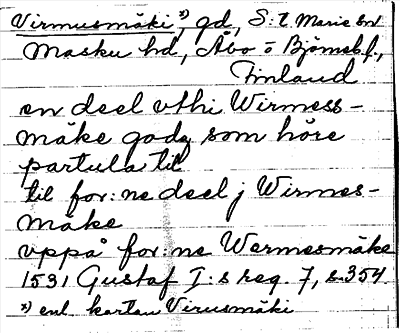 Virmusmäki x), gd, S:t Marie sn
Masku hd, Åbo o Björneb.l.,
Finland
en deel vthi Wirmess-
mäke godz som höre
partula til
til for:ne deel j Wirmes-
mäke
vppå for:ne Wermesmäke
1531 Gustaf I:s reg. 7, s.354
x) enl. kartan Virusmäki